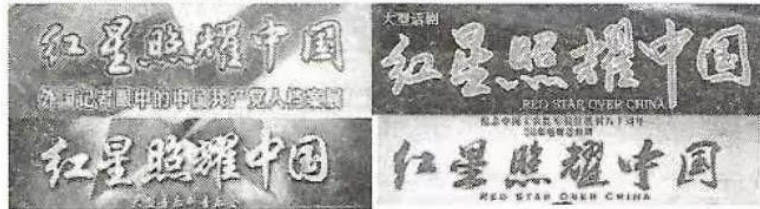 红星照耀中国
外国记者眼中的中国共产党人档案展
大型话剧
红星照耀中国
RED STAR OVER CHINA
红星照耀中国
红星照耀中国
RED STAR OVER CHINA